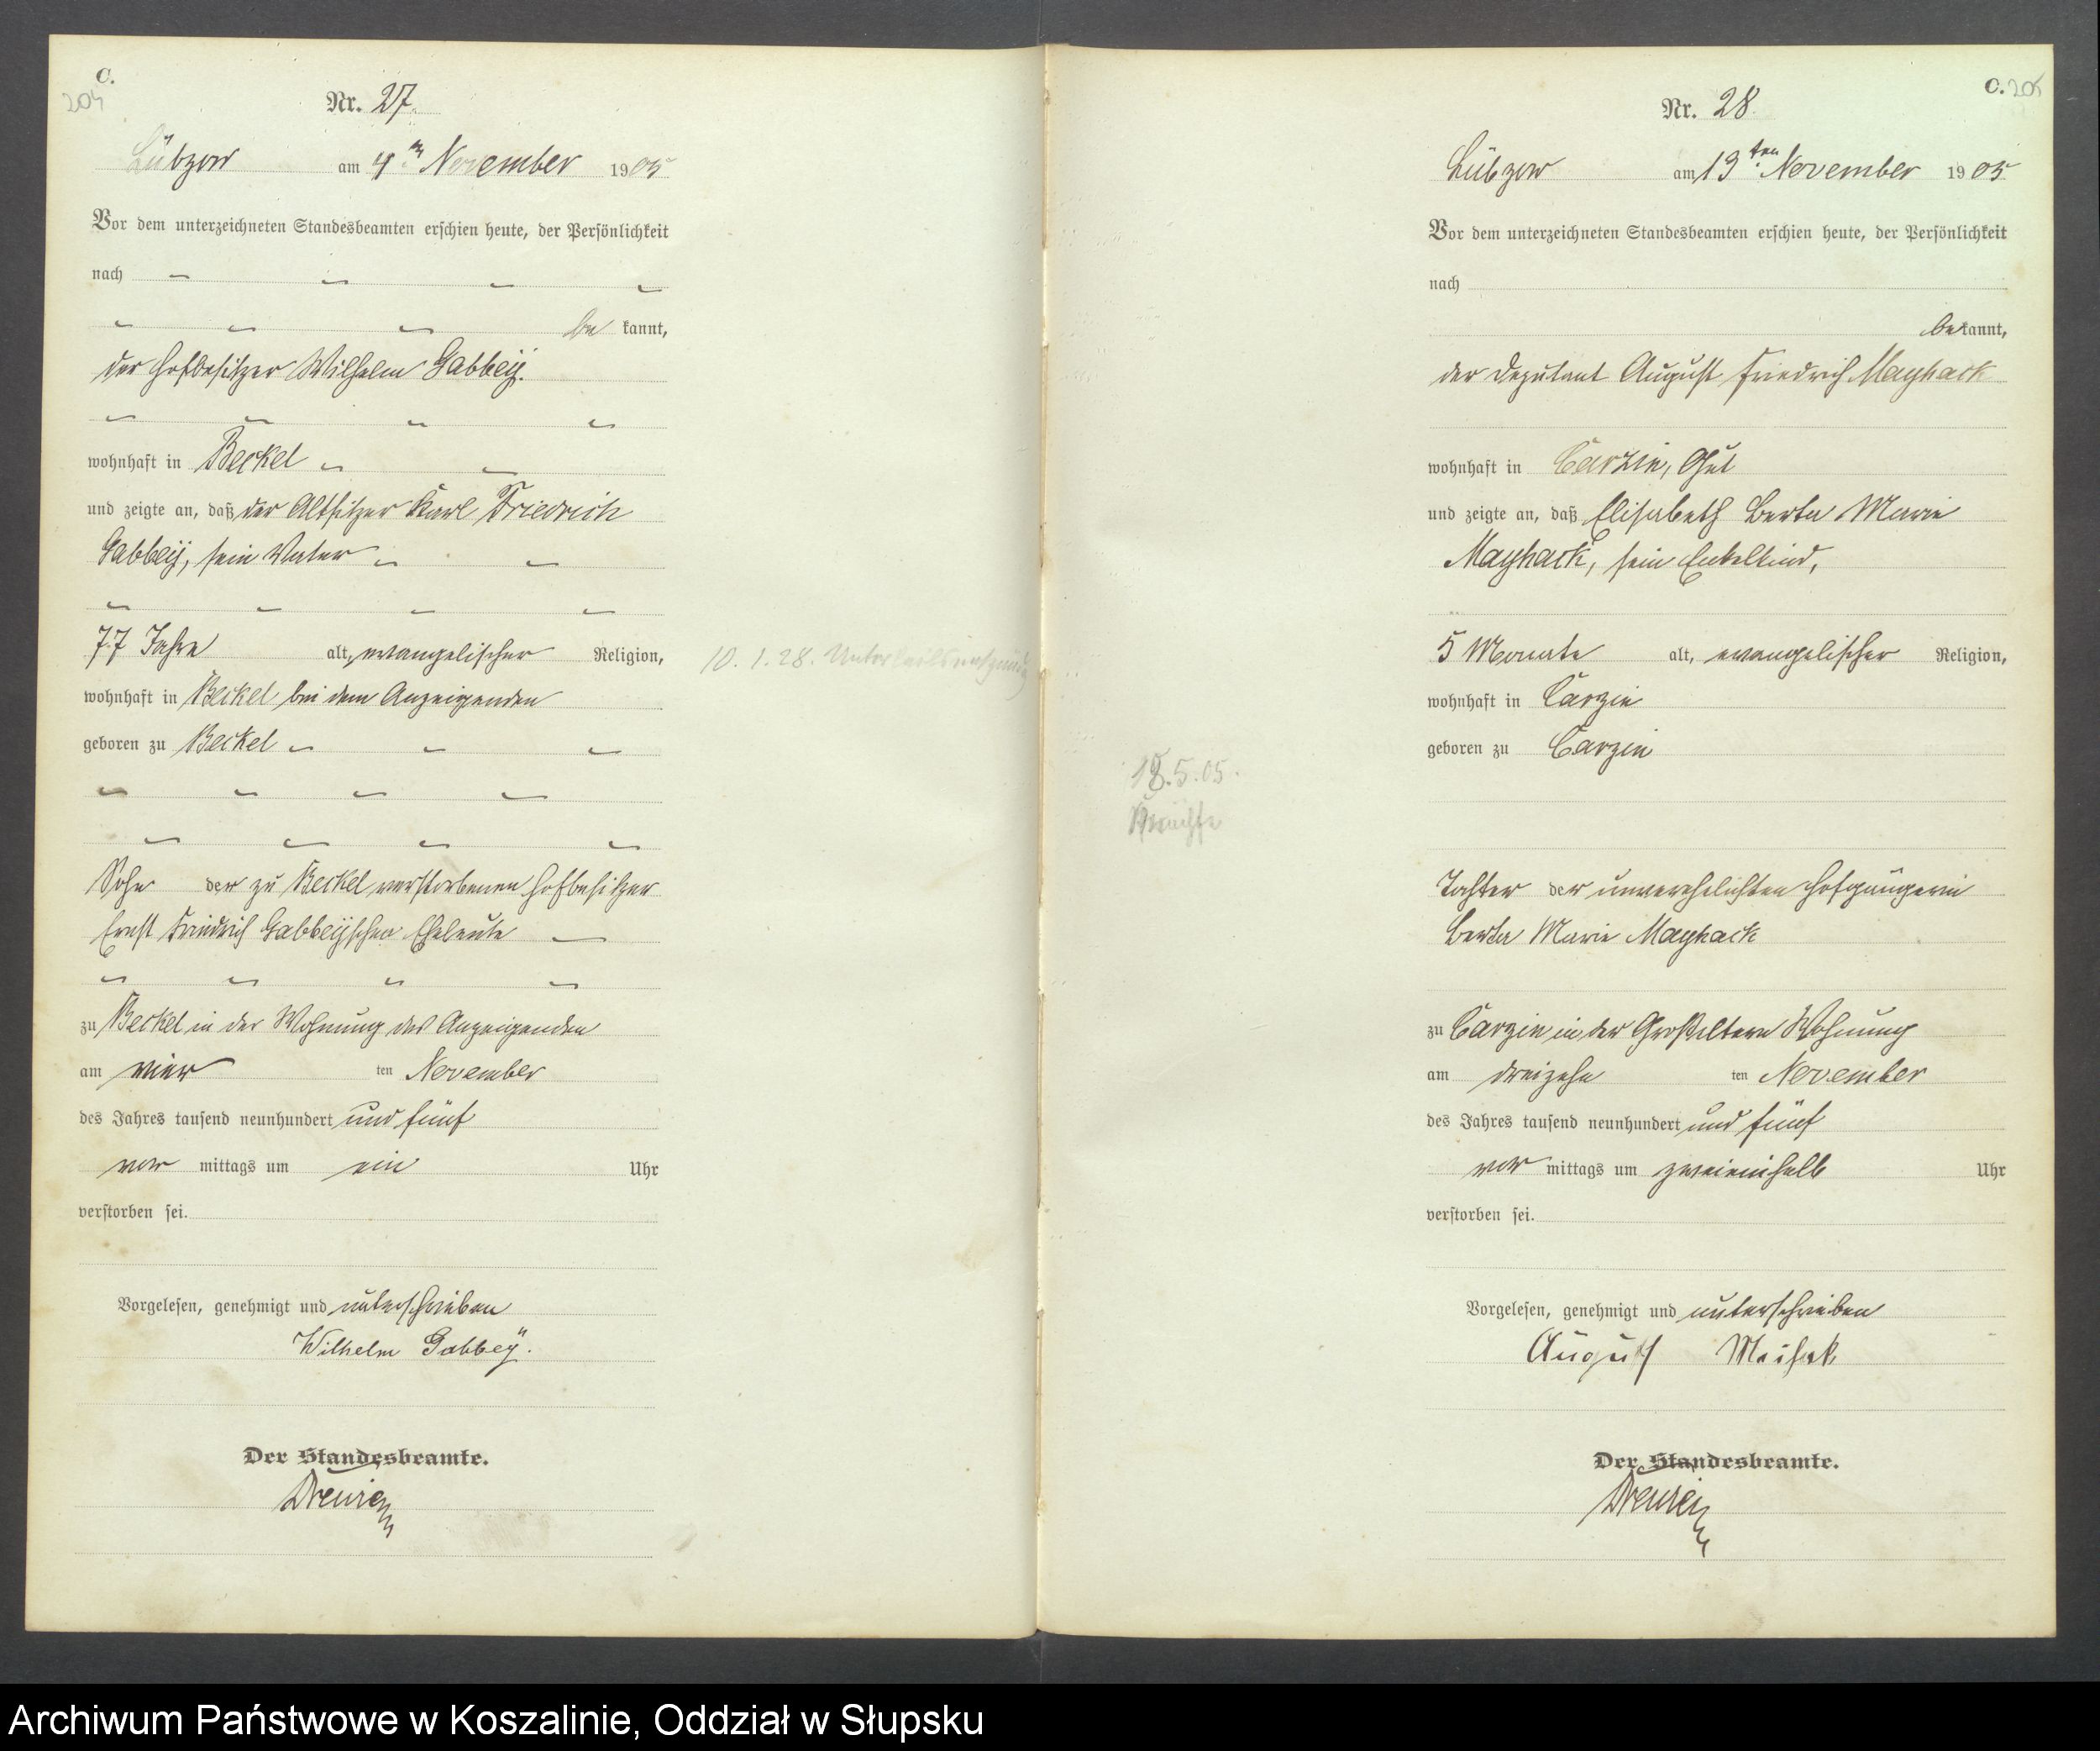 C.
204
Nr. 27.
Lübzow am 4ten November 1905
Vor dem unterzeichneten Standesbeamten erschien heute, der Persönlichkeit
nach
be kannt,
der Hofbesitzer Wilhelm Gabbeÿ.
wohnhaft in Beckel
und zeigte an, daß der Altsitzer Karl Friedrich
Gabbeÿ, sein Vater
77 Jahre alt, evangelischer Religion,
wohnhaft in Beckel bei dem Anzeigenden
geboren zu Beckel
Sohn der zu Beckel verstorbenen Hofbesitzer
Ernst Friedrich Gabbeÿschen Eheleute
zu Beckel in der Wohnung des Anzeigenden
am vier ten November
des Jahres tausend neunhundert und fünf
vor mittags um ein Uhr
verstorben sei.
Vorgelesen, genehmigt und unterschrieben
Wilhelm Gabbeÿ.
Der Standesbeamte.
10. 1. 28.
C. 205
Nr. 28.
Lübzow am 13ten November 1905
Vor dem unterzeichneten Standesbeamten erschien heute, der Persönlichkeit
nach
be kannt,
der Deputant August Friedrich Mayhack
wohnhaft in Carzin, Gut
und zeigte an, daß Elisabeth Berta Marie
Mayhack, sein Enkelkind,
5 Monate alt, evangelischer Religion,
wohnhaft in Carzin
geboren zu Carzin
18.5.05.
Tochter der unverehelichten Hofgängerin
Berta Marie Mayhack
zu Carzin in der Großeltern Wohnung
am dreizehn ten November
des Jahres tausend neunhundert und fünf
vor mittags um zweieinhalb Uhr
verstorben sei.
Vorgelesen, genehmigt und unterschrieben
August Meihak
Der Standesbeamte.
Archiwum Państwowe w Koszalinie, Oddział w Słupsku